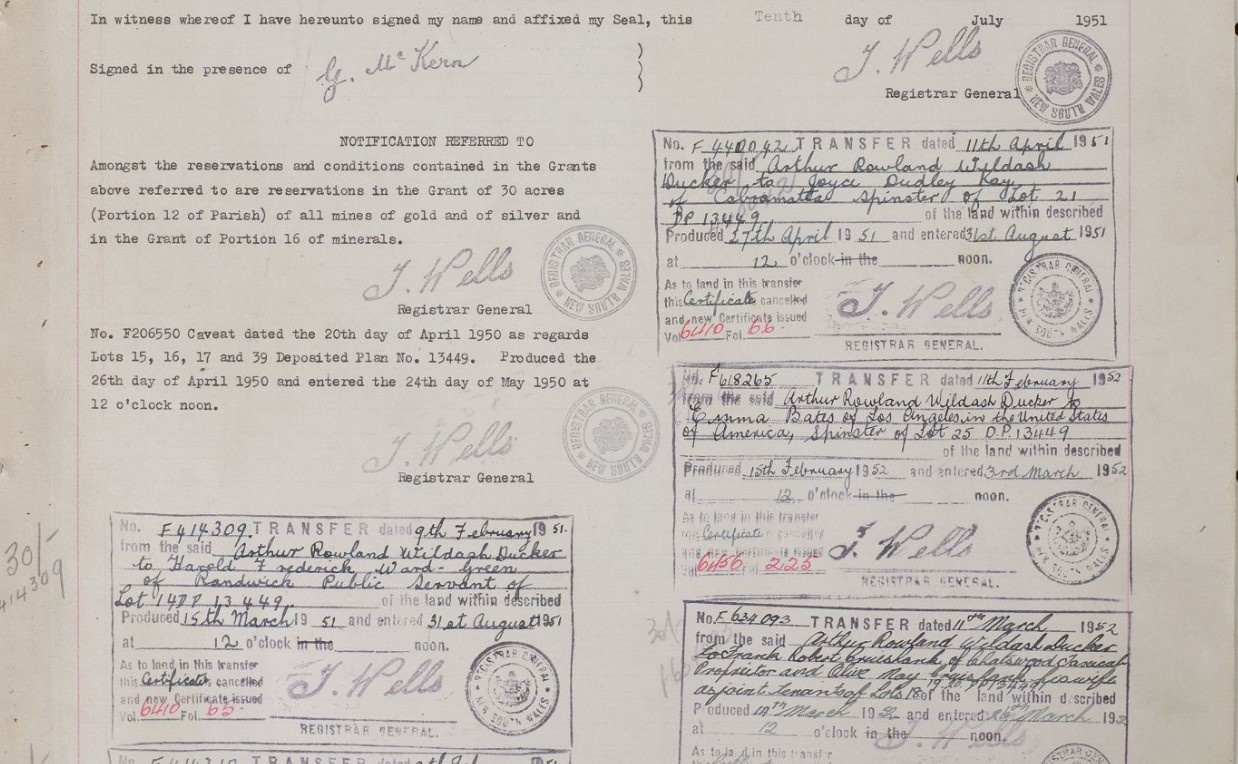 In witness whereof I have hereunto signed my name and affixed my Seal, this Tenth day of July 1951
Signed in the presence of G. McKern
J. Wells
Registrar General
REGISTRAR GENERAL NEW SOUTH WALES
NOTIFICATION REFERRED TO
Amongst the reservations and conditions contained in the Grants
above referred to are reservations in the Grant of 30 acres
(Portion 12 of Parish) of all mines of gold and of silver and
in the Grant of Portion 16 of minerals.
J. Wells
Registrar General
REGISTRAR GENERAL NEW SOUTH WALES
No. F206550 Caveat dated the 20th day of April 1950 as regards
Lots 15, 16, 17 and 39 Deposited Plan No. 13449. Produced the
26th day of April 1950 and entered the 24th day of May 1950 at
12 o'clock noon.
J. Wells
Registrar General
REGISTRAR GENERAL NEW SOUTH WALES
30/-
414309
No. F414309. TRANSFER dated 9th February 1951.
from the said Arthur Rowland Wildash Ducker
to Harold Frederick Ward-Green
of Randwick Public Servant of
Lot 14 DP 13449 of the land within described
Produced 15th March 1951 and entered 31st August 1951
at 12 o'clock in the noon.
As to land in this transfer
this Certificate cancelled
and new Certificate issued
Vol. 6410 Fol. 65
J. Wells
REGISTRAR GENERAL.
REGISTRAR GENERAL NEW SOUTH WALES
No. F440042 TRANSFER dated 11th April 1951
from the said Arthur Rowland Wildash
Ducker to Joyce Dudley Kay
of Cabramatta Spinster of Lot 21
DP 13449 of the land within described
Produced 27th April 1951 and entered 31st August 1951
at 12 o'clock in the noon.
As to land in this transfer
this Certificate cancelled
and new Certificate issued
Vol. 6410 Fol. 66
J. Wells
REGISTRAR GENERAL.
REGISTRAR GENERAL NEW SOUTH WALES
No. F618265 TRANSFER dated 11th February 1952
from the said Arthur Rowland Wildash Ducker to
Emma Bates of Los Angeles in the United States
of America, Spinster of Lot 25 D.P. 13449
of the land within described
Produced 15th February 1952 and entered 3rd March 1952
at 12 o'clock in the noon.
As to land in this transfer
this Certificate cancelled
and new Certificate issued
Vol. 6456 Fol. 225
J. Wells
REGISTRAR GENERAL.
REGISTRAR GENERAL NEW SOUTH WALES
30/-
No. F634093 TRANSFER dated 11th March 1952
from the said Arthur Rowland Wildash Ducker
to Frank Robert of Chatswood
Proprietor and Olive May his wife
as joint tenants of Lots 18 of the land within described
Produced March 1952 and entered March 195
at 12 o'clock in the noon.
J. Wells
As to land in this transfer